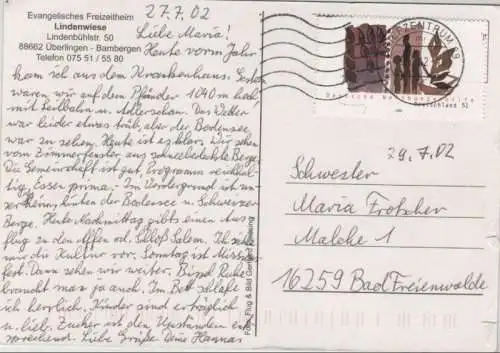 Evangelisches Freizeitheim
Lindenwiese
Lindenbühlstr. 50
88662 Überlingen - Bambergen
Telefon 075 51 / 55 80
27.7.02
Liebe Maria!
Heute vorm Jahr
kam ich aus dem Krankenhaus. Gestern
waren wir auf dem Pfänder 1040 m hoch
mit Seilbahn u. Adlerschau. Das Wetter
war leider etwas trüb, aber der Bodensee
war zu sehen. Heute ist es klar. Wir sehn
vom Zimmerfenster aus schneebedeckte Berge.
Die Gemeinschaft ist gut, Programm reichhal-
tig, Essen prima. Im Vordergrund ist un-
ser Heim, hinten der Bodensee u. Schweizer
Berge. Heute Nachmittag gibts einen Aus-
flug zu den Affen od. Schloß Salem. Ich
mir die Kultur vor. Sonntag ist Missions-
fest. Dann sehn wir weiter. Bissel Ruhe
braucht man ja auch. Im Bett schlafe
ich herrlich. Kinder sind erträglich
u. lieb. Zucker ist den Umständen ent-
sprechend. Liebe Grüße Deine Hanna
Foto, Flug & Bild Gerhard
BRIEFZENTRUM
Deutschland 51
29.7.02
Schwester
Maria Frotscher
Malche 1
16259 Bad Freienwalde